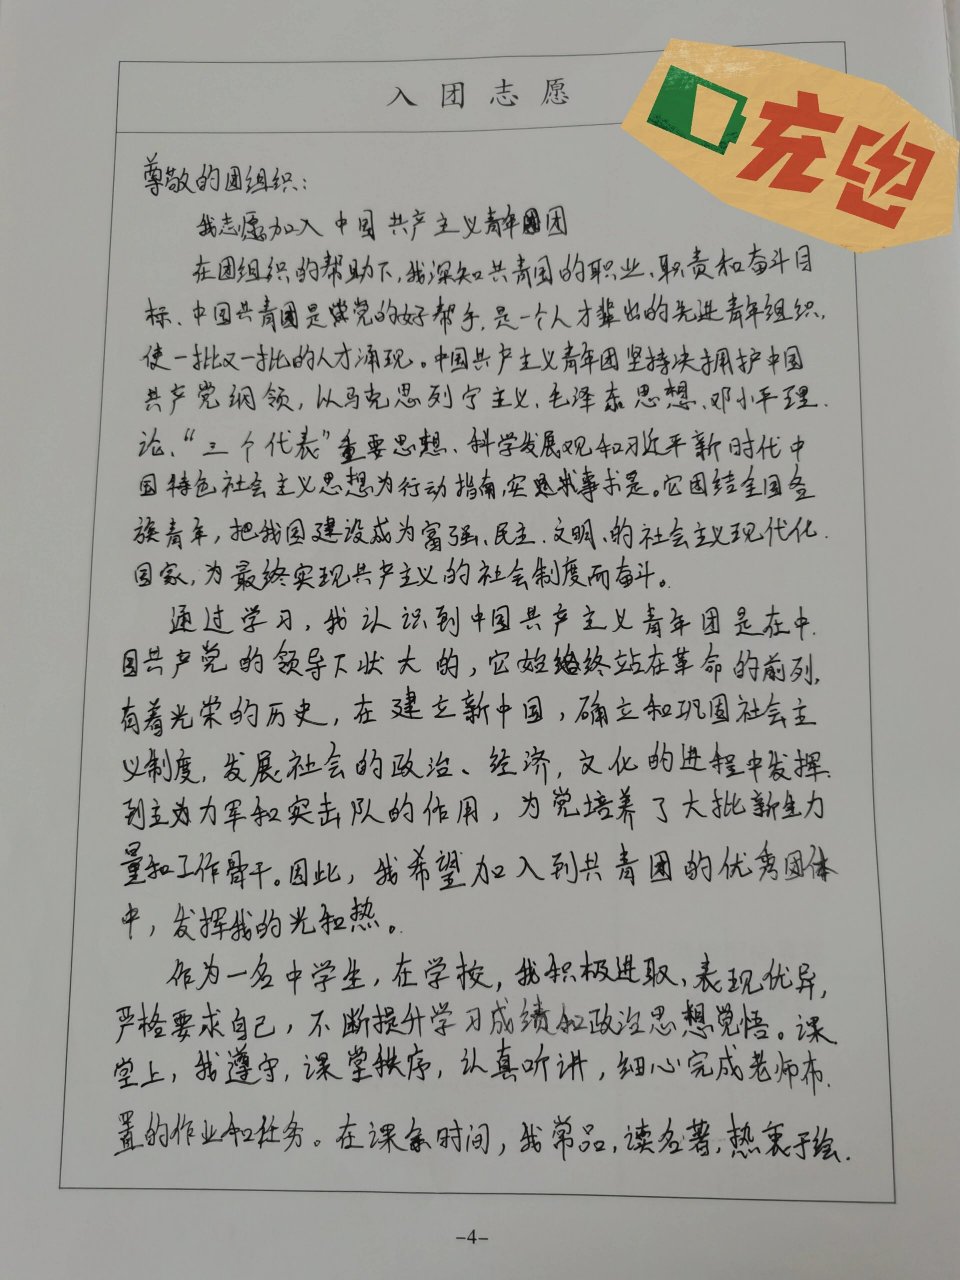 入团志愿
充电
尊敬的团组织：
我志愿加入中国共产主义青年团
在团组织的帮助下，我深知共青团的职业、职责和奋斗目
标、中国共青团是党的好帮手，是一个人才辈出的先进青年组织，
使一批又一批的人才涌现。中国共产主义青年团坚持决拥护中国
共产党纲领，以马克思列宁主义、毛泽东思想、邓小平理
论、“三个代表”重要思想、科学发展观和习近平新时代中
国特色社会主义思想为行动指南，实事求是。它团结全国各
族青年，把我国建设成为富强、民主、文明、的社会主义现代化
国家，为最终实现共产主义的社会制度而奋斗。
通过学习，我认识到中国共产主义青年团是在中
国共产党的领导下壮大的，它始终站在革命的前列，
有着光荣的历史，在建立新中国，确立和巩固社会主
义制度，发展社会的政治、经济，文化的进程中发挥
到主力军和突击队的作用，为党培养了大批新生力
量和工作骨干。因此，我希望加入到共青团的优秀团体
中，发挥我的光和热。
作为一名中学生，在学校，我积极进取、表现优异，
严格要求自己，不断提升学习成绩和政治思想觉悟。课
堂上，我遵守，课堂秩序，认真听讲，细心完成老师布
置的作业和任务。在课余时间，我常品，读名著，热衷于绘
-4-